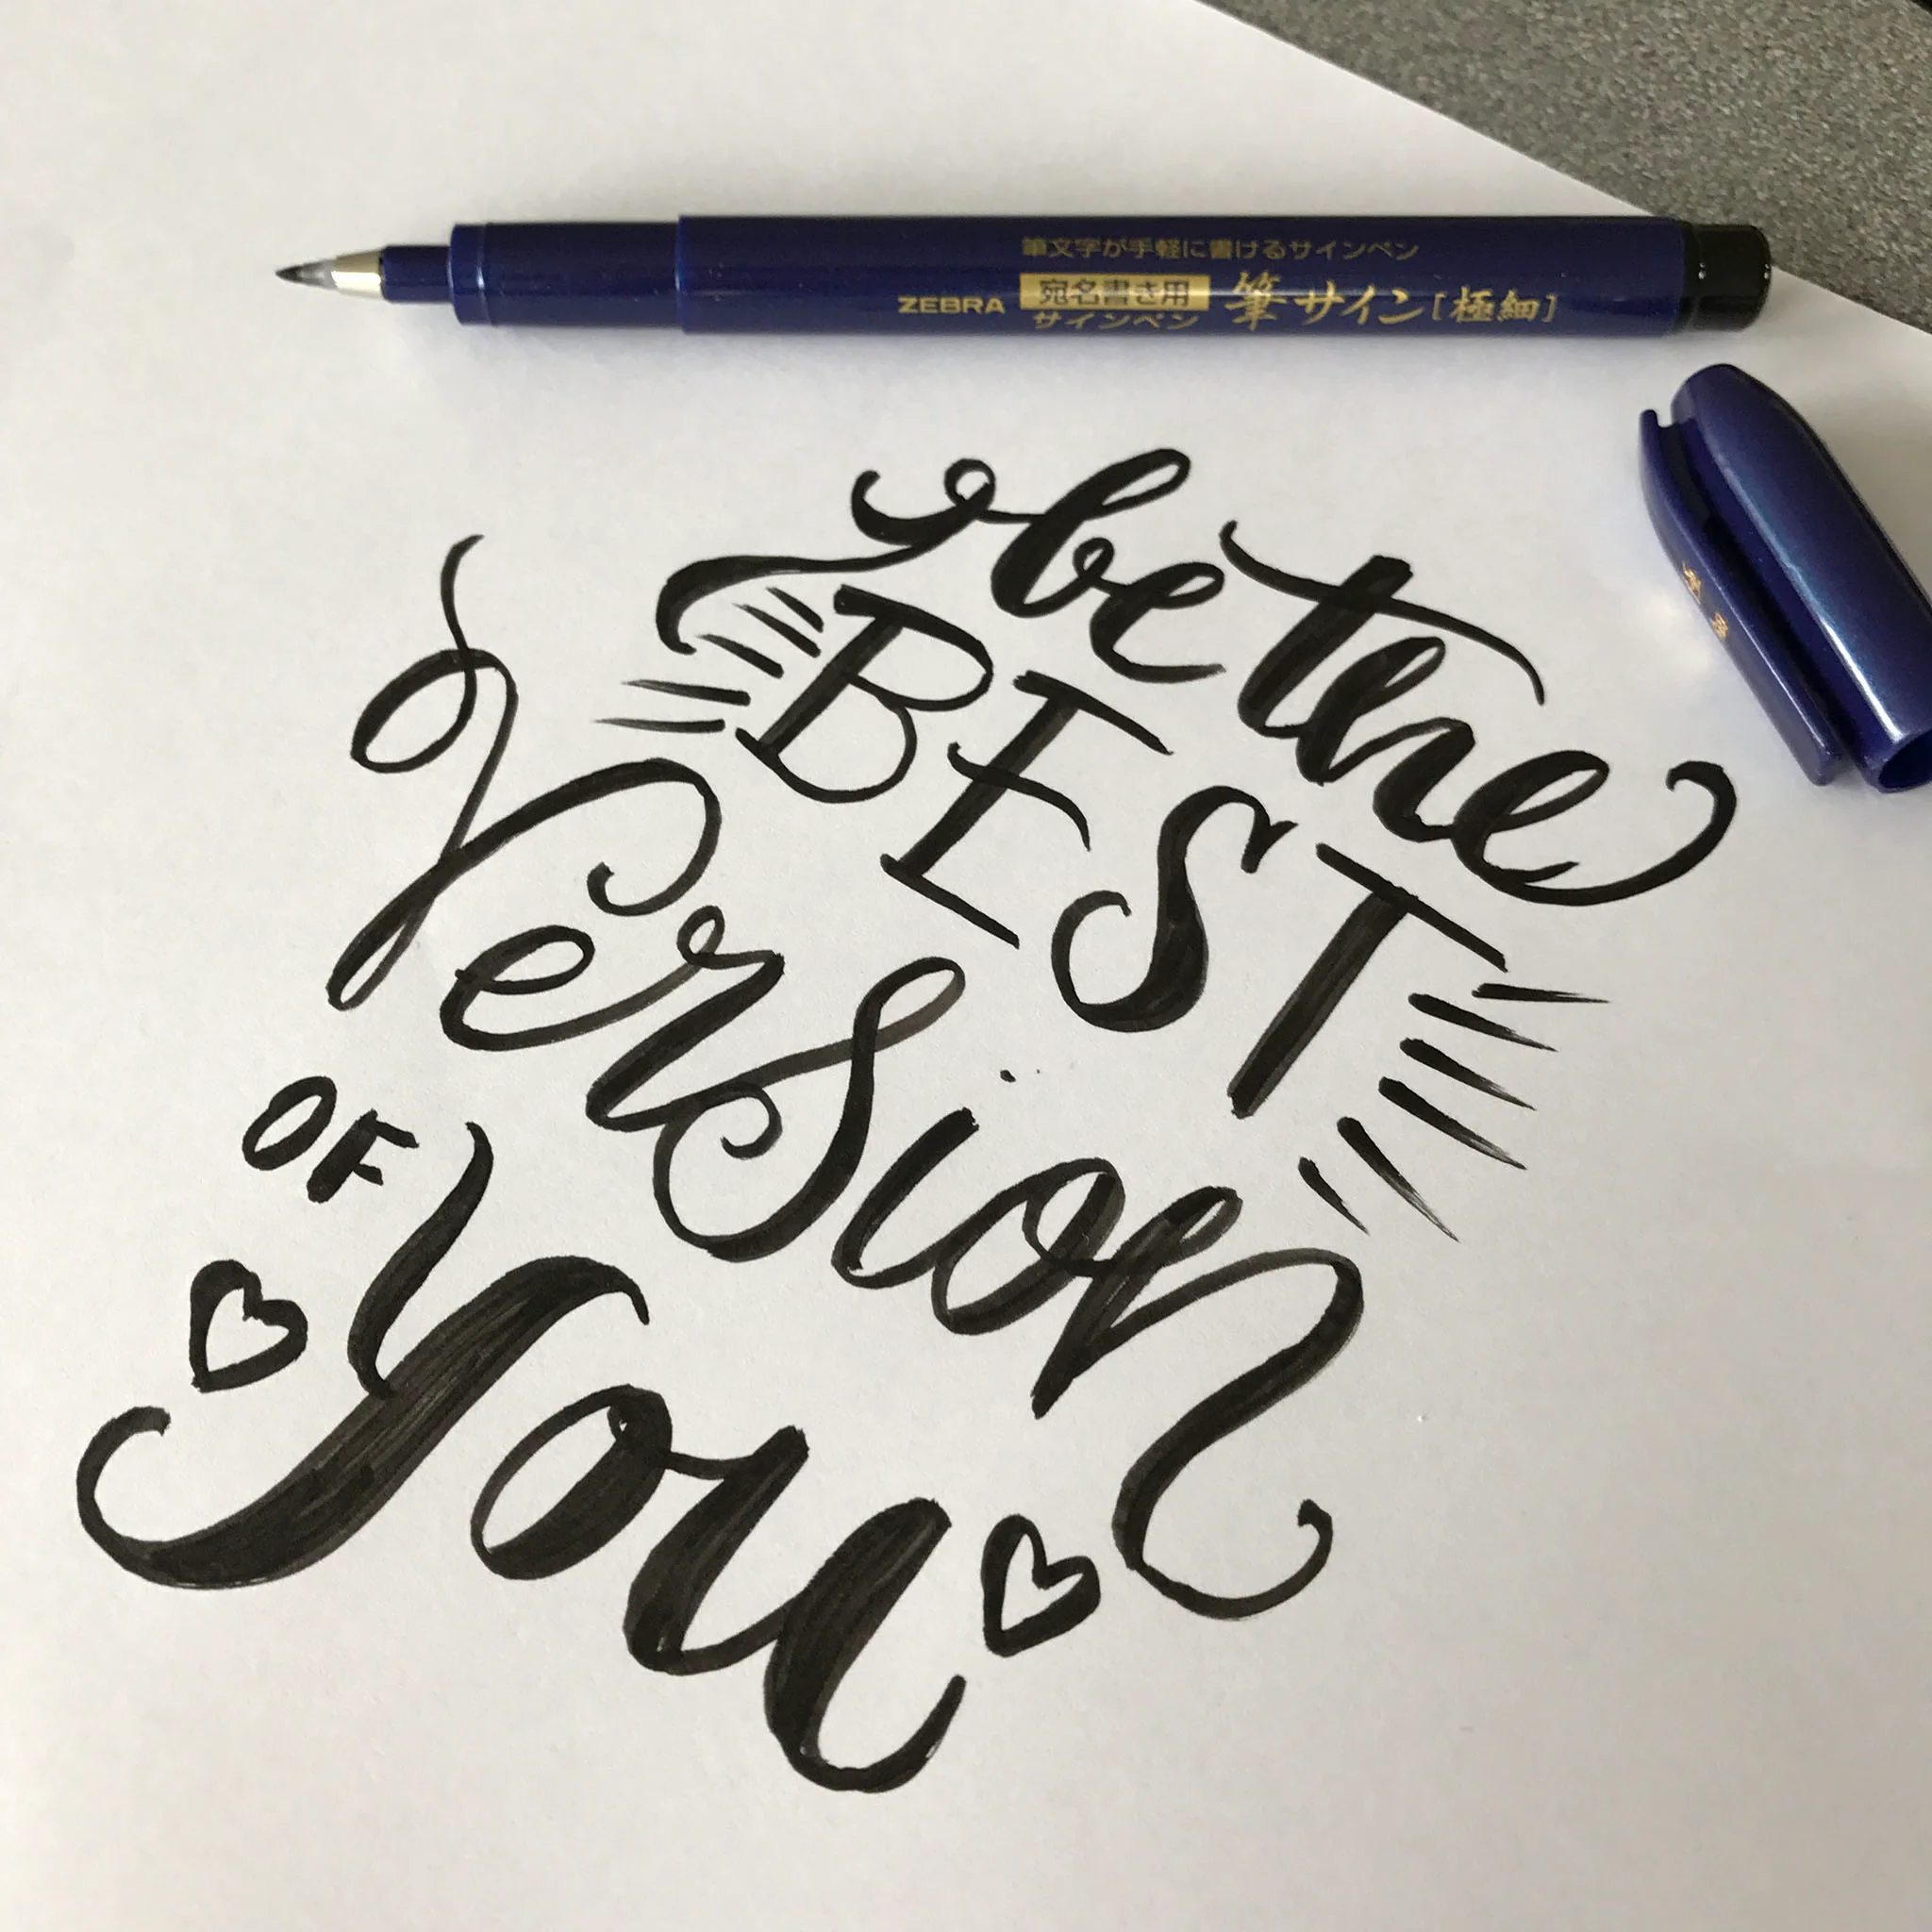 筆文字が手軽に書けるサインペン
ZEBRA 宛名書き用 サインペン 筆サイン[極細]
be the
BEST
Version
OF
you